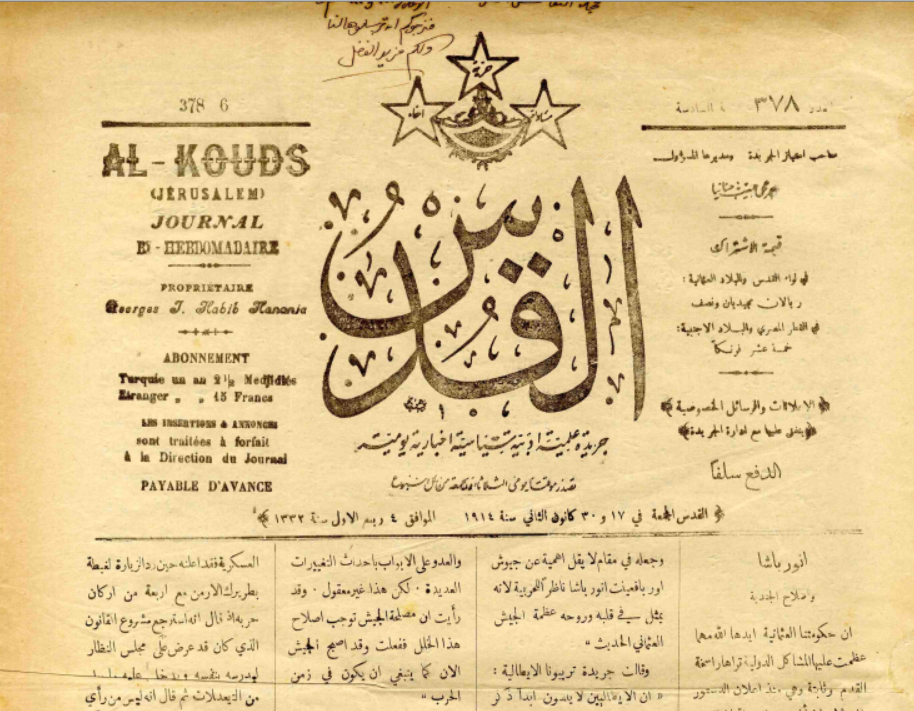 فنرجوكم ان ترسلوها لنا
ولكم مزيد الفضل
حرية
اخاء
مساواة
378 6
AL-KOUDS
(JÉRUSALEM)
JOURNAL
BI-HEBDOMADAIRE
PROPRIÉTAIRE
Georges J. Habib Hanania
ABONNEMENT
Turquie un an 2 1/2 Medjidiés
Etranger „ „ 15 Francs
LES INSERTIONS & ANNONCES
sont traitées à forfait
à la Direction du Journal
PAYABLE D'AVANCE
القدس
جريدة علمية ادبية اخبارية يومية
تصدر موقتا يومي الثلاثاء والجمعة من كل
العدد ٣٧٨ السادسة
صاحب امتياز الجريدة ومديرها المسؤول
جرجي حبيب حنانيا
قيمة الاشتراك
في لواء القدس والبلاد العثمانية :
ريالان مجيديان ونصف
في القطر المصري والبلاد الاجنبية :
خمسة عشر فرنكاً
الاعلانات والرسائل الخصوصية
يتفق عليها مع ادارة الجريدة
الدفع سلفاً
القدس الجمعة في ١٧ و ٣٠ كانون الثاني سنة ١٩١٤ الموافق ٤ ربيع الاول سنة ١٣٣٢
انور باشا
واصلاح الجندية
ان حكومتنا العثمانية ايدها الله مهما
عظمت عليها المشاكل الدولية تراها راسخة
القدم وثابتة وهي منذ اعلان الدستور
وجعله في مقام لا يقل اهمية عن جيوش
اوربا فعينت انور باشا ناظراً للحربية لانه
يمثل في قلبه وروحه عظمة الجيش
العثماني الحديث "
وقالت جريدة تريبونا الايطالية :
" ان الايطاليين لا ينسون ابداً ذكر
والعدو على الابواب باحداث التغييرات
العديدة . لكن هذا غير معقول . وقد
رأيت ان مصلحة الجيش توجب اصلاح
هذا الخلل ففعلت وقد اصبح الجيش
الان كما ينبغي ان يكون في زمن
الحرب "
العسكرية فقد اعلنه حين رد الزيارة لغبطة
بطريرك الارمن مع اربعة من اركان
حربه اذ قال انه استرجع مشروع القانون
الذي كان قد عرض على مجلس النظار
ليدرسه بنفسه ويدخل عليه
من التعديلات ثم قال انه ليس من رأي